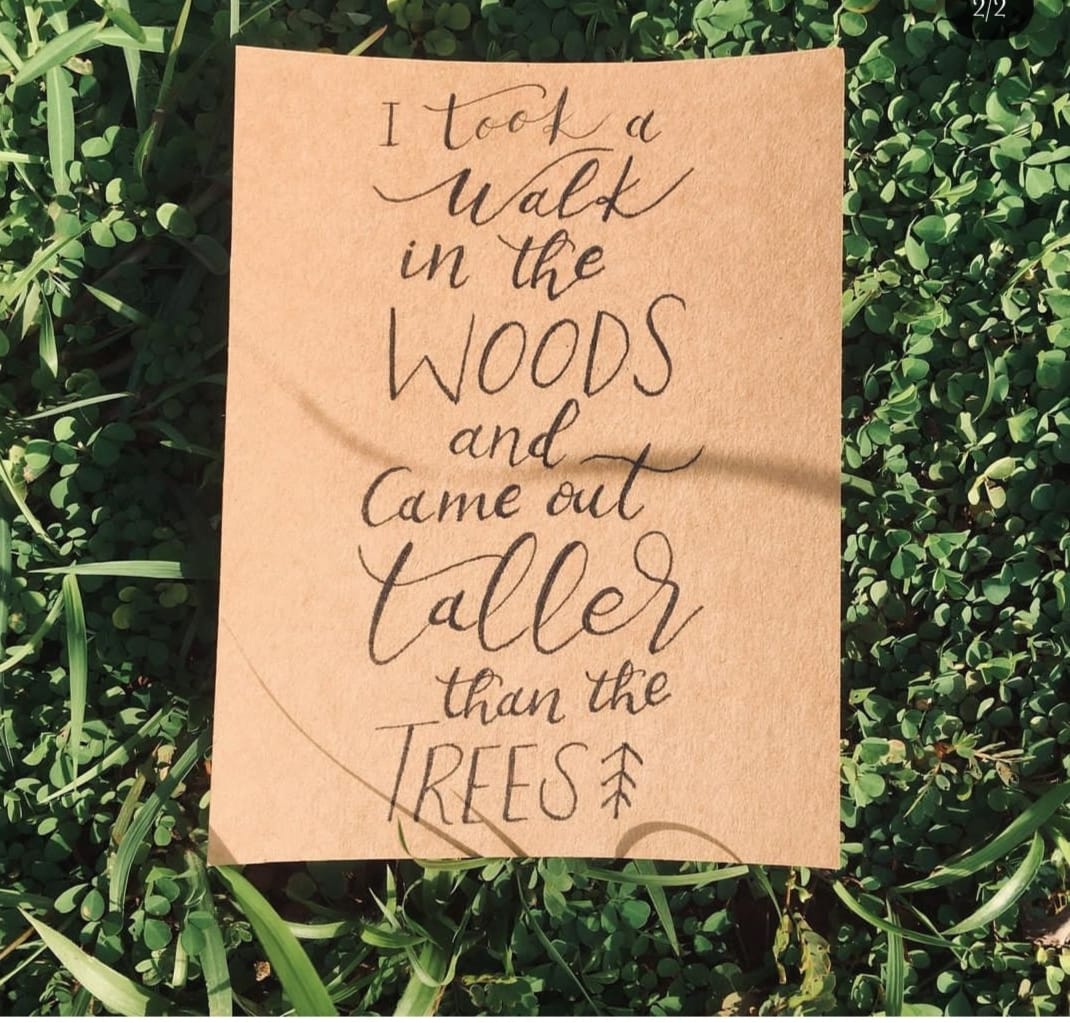 2/2
I took a
Walk
in the
WOODS
and
Came out
taller
than the
TREES